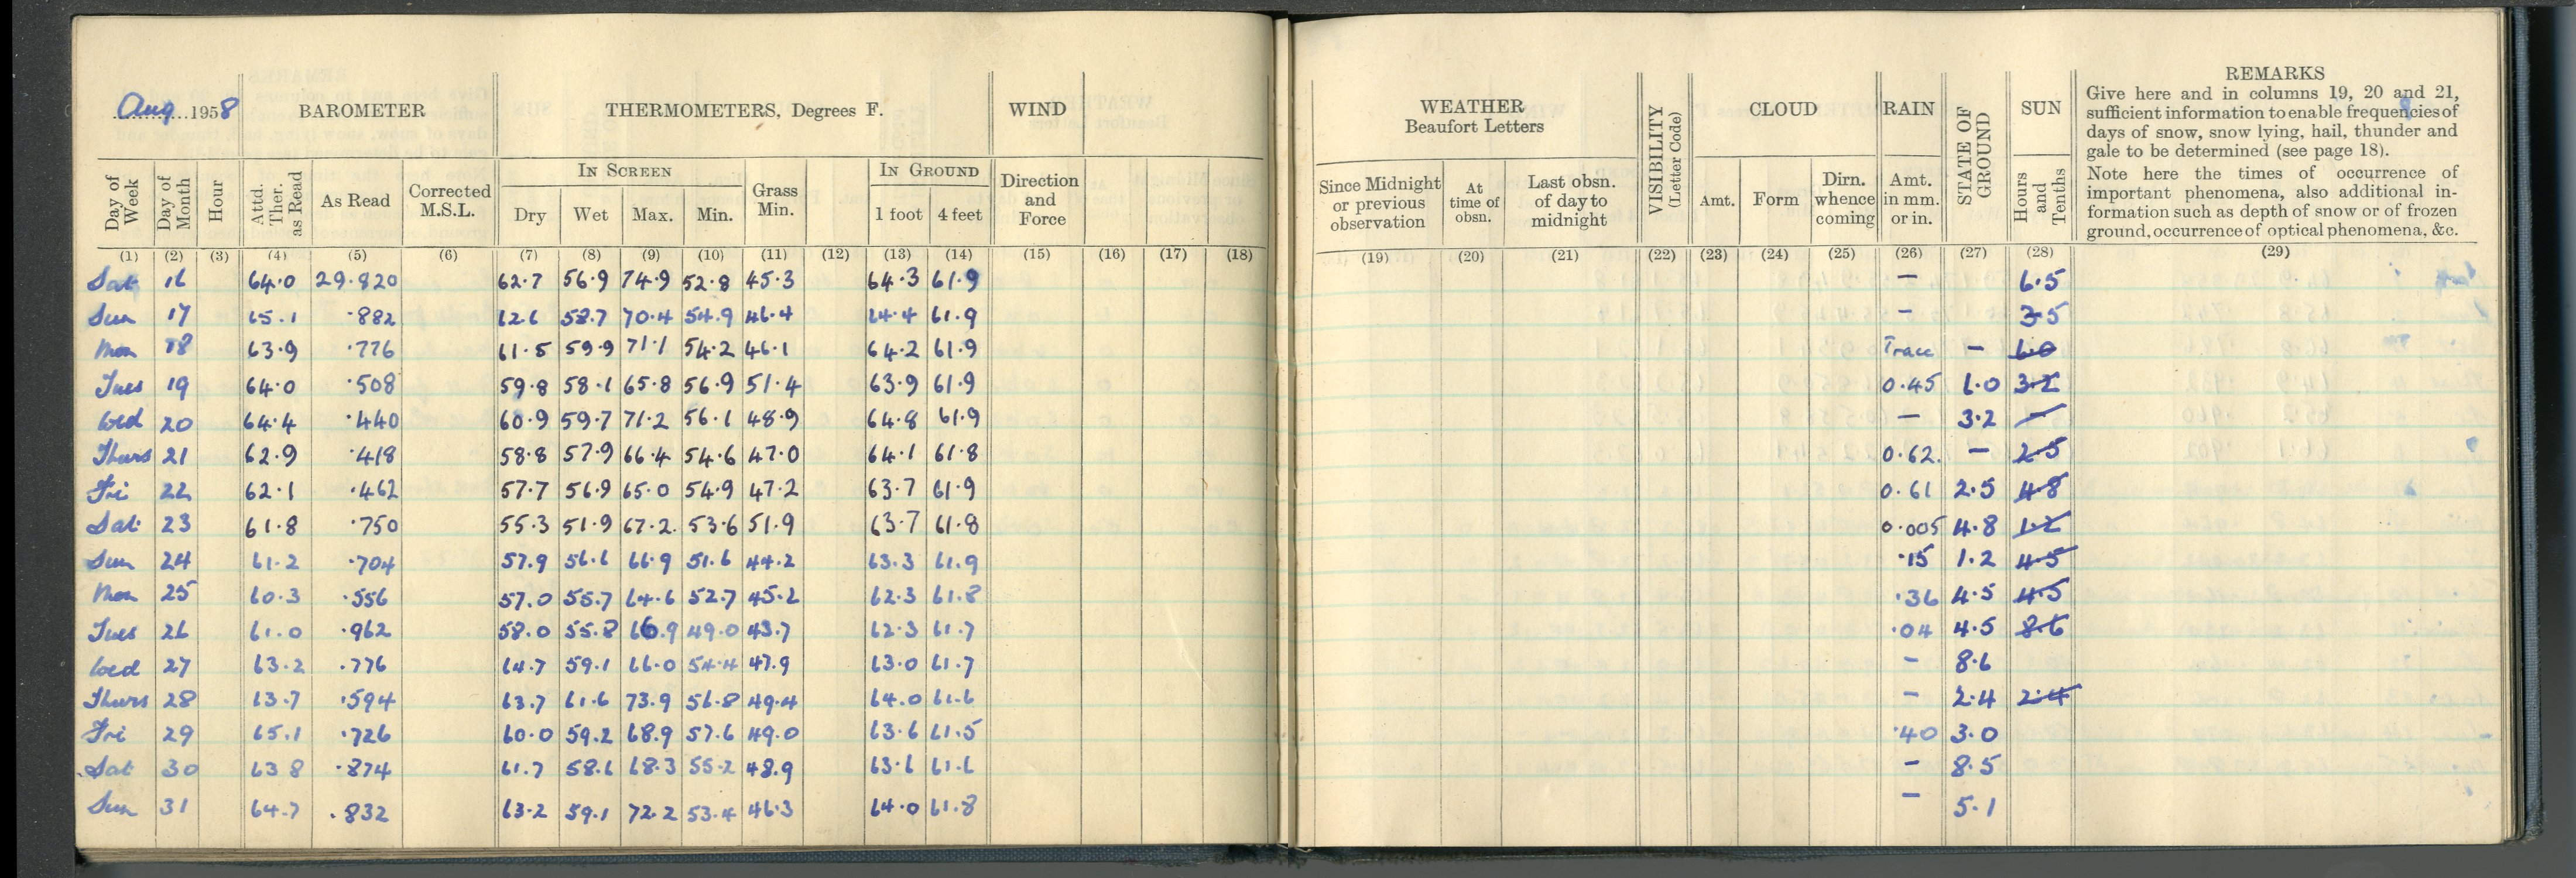 Aug 1958 BAROMETER THERMOMETERS, Degrees F. WIND
Day of Week Day of Month Hour Attd. Ther. as Read As Read Corrected M.S.L. IN SCREEN Dry Wet Max. Min. Grass Min. IN GROUND 1 foot 4 feet Direction and Force
(1) (2) (3) (4) (5) (6) (7) (8) (9) (10) (11) (12) (13) (14) (15) (16) (17) (18)
Sat 16 64.0 29.820 62.7 56.9 74.9 52.8 45.3 64.3 61.9
Sun 17 65.1 .882 62.6 58.7 70.4 54.9 46.4 64.4 61.9
Mon 18 63.9 .776 61.5 59.9 71.1 54.2 46.1 64.2 61.9
Tues 19 64.0 .508 59.8 58.1 65.8 56.9 51.4 63.9 61.9
Wed 20 64.4 .440 60.9 59.7 71.2 56.1 48.9 64.8 61.9
Thurs 21 62.9 .418 58.8 57.9 66.4 54.6 47.0 64.1 61.8
Fri 22 62.1 .462 57.7 56.9 65.0 54.9 47.2 63.7 61.9
Sat 23 61.8 .750 55.3 51.9 67.2 53.6 51.9 63.7 61.8
Sun 24 61.2 .704 57.9 56.6 66.9 51.6 44.2 63.3 61.9
Mon 25 60.3 .556 57.0 55.7 64.6 52.7 45.2 62.3 61.8
Tues 26 61.0 .962 58.0 55.8 66.9 49.0 43.7 62.3 61.7
Wed 27 63.2 .776 64.7 59.1 66.0 54.4 47.9 63.0 61.7
Thurs 28 63.7 .594 63.7 61.6 73.9 56.8 49.4 64.0 61.6
Fri 29 65.1 .726 60.0 59.2 68.9 57.6 49.0 63.6 61.5
Sat 30 63.8 .874 61.7 58.6 68.3 55.2 48.9 63.6 61.6
Sun 31 64.7 .832 63.2 59.1 72.2 53.4 46.3 64.0 61.8
WEATHER Beaufort Letters VISIBILITY (Letter Code) CLOUD RAIN STATE OF GROUND SUN REMARKS
Since Midnight or previous observation At time of obsn. Last obsn. of day to midnight Amt. Form Dirn. whence coming Amt. in mm. or in. Hours and Tenths
Give here and in columns 19, 20 and 21,
sufficient information to enable frequencies of
days of snow, snow lying, hail, thunder and
gale to be determined (see page 18).
Note here the times of occurrence of
important phenomena, also additional in-
formation such as depth of snow or of frozen
ground, occurrence of optical phenomena, &c.
(19) (20) (21) (22) (23) (24) (25) (26) (27) (28) (29)
— 6.5
— 3.5
Trace — 6.0
0.45 6.0 3.2
— 3.2 —
0.62. — 2.5
0.61 2.5 4.8
0.005 4.8 1.2
.15 1.2 4.5
.36 4.5 4.5
.04 4.5 8.6
— 8.6
— 2.4 2.4
.40 3.0
— 8.5
— 5.1